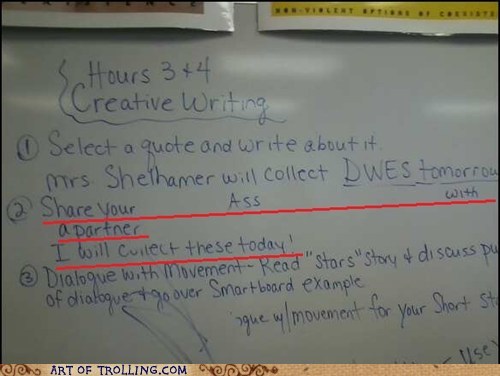 NON-VIOLENT OPTIONS OF
Hours 3 & 4
Creative Writing
① Select a quote and write about it.
Mrs. Shelhamer will collect DWES tomorrow
② Share your Ass with
a partner
I will cullect these today!
③ Dialogue with Movement - Read "Stars" Story & discuss
of dialogue & go over Smartboard example
ogue w/movement for your Short
Use
ART OF TROLLING.COM